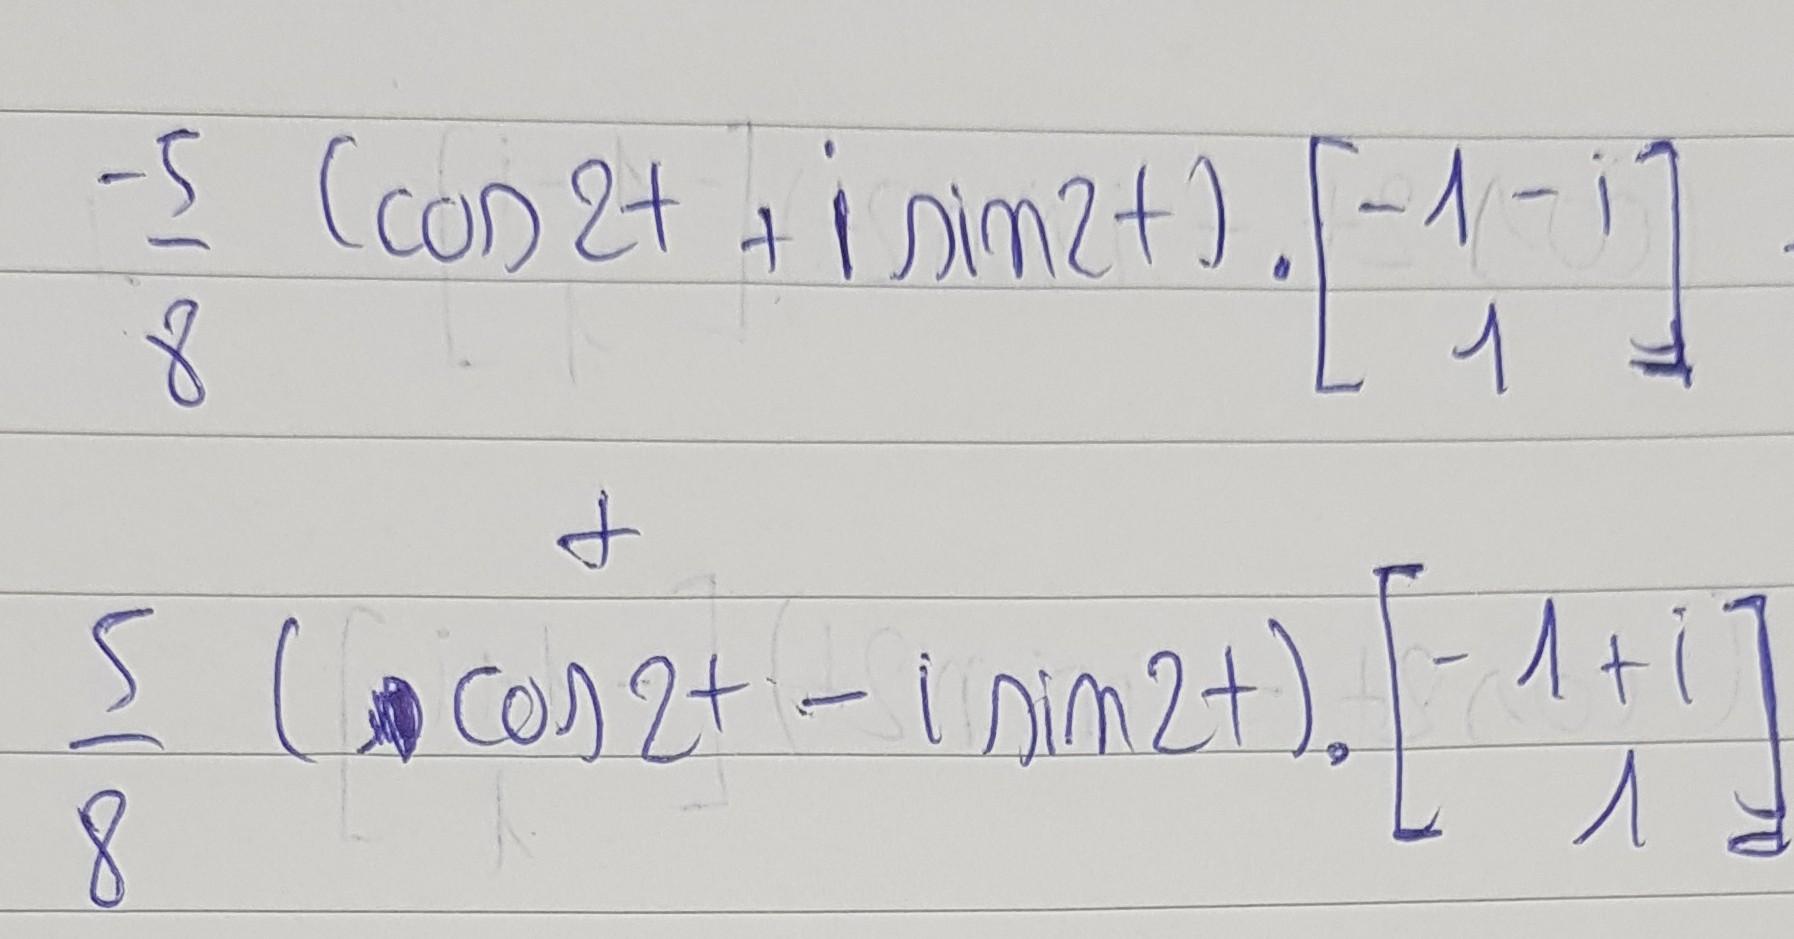 -5/8 (cos 2t + i sin 2t) . [-1 - i]
[1]
+
5/8 (cos 2t - i sin 2t) . [-1 + i]
[1]